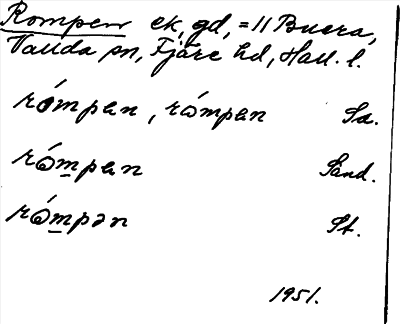 Rompen ek, gd, = 11 Buera,
Vallda sn, Fjäre hd, Hall. l.
rómpen, rómpan Sa.
rómpen Sand.
rómpən St.
1951.